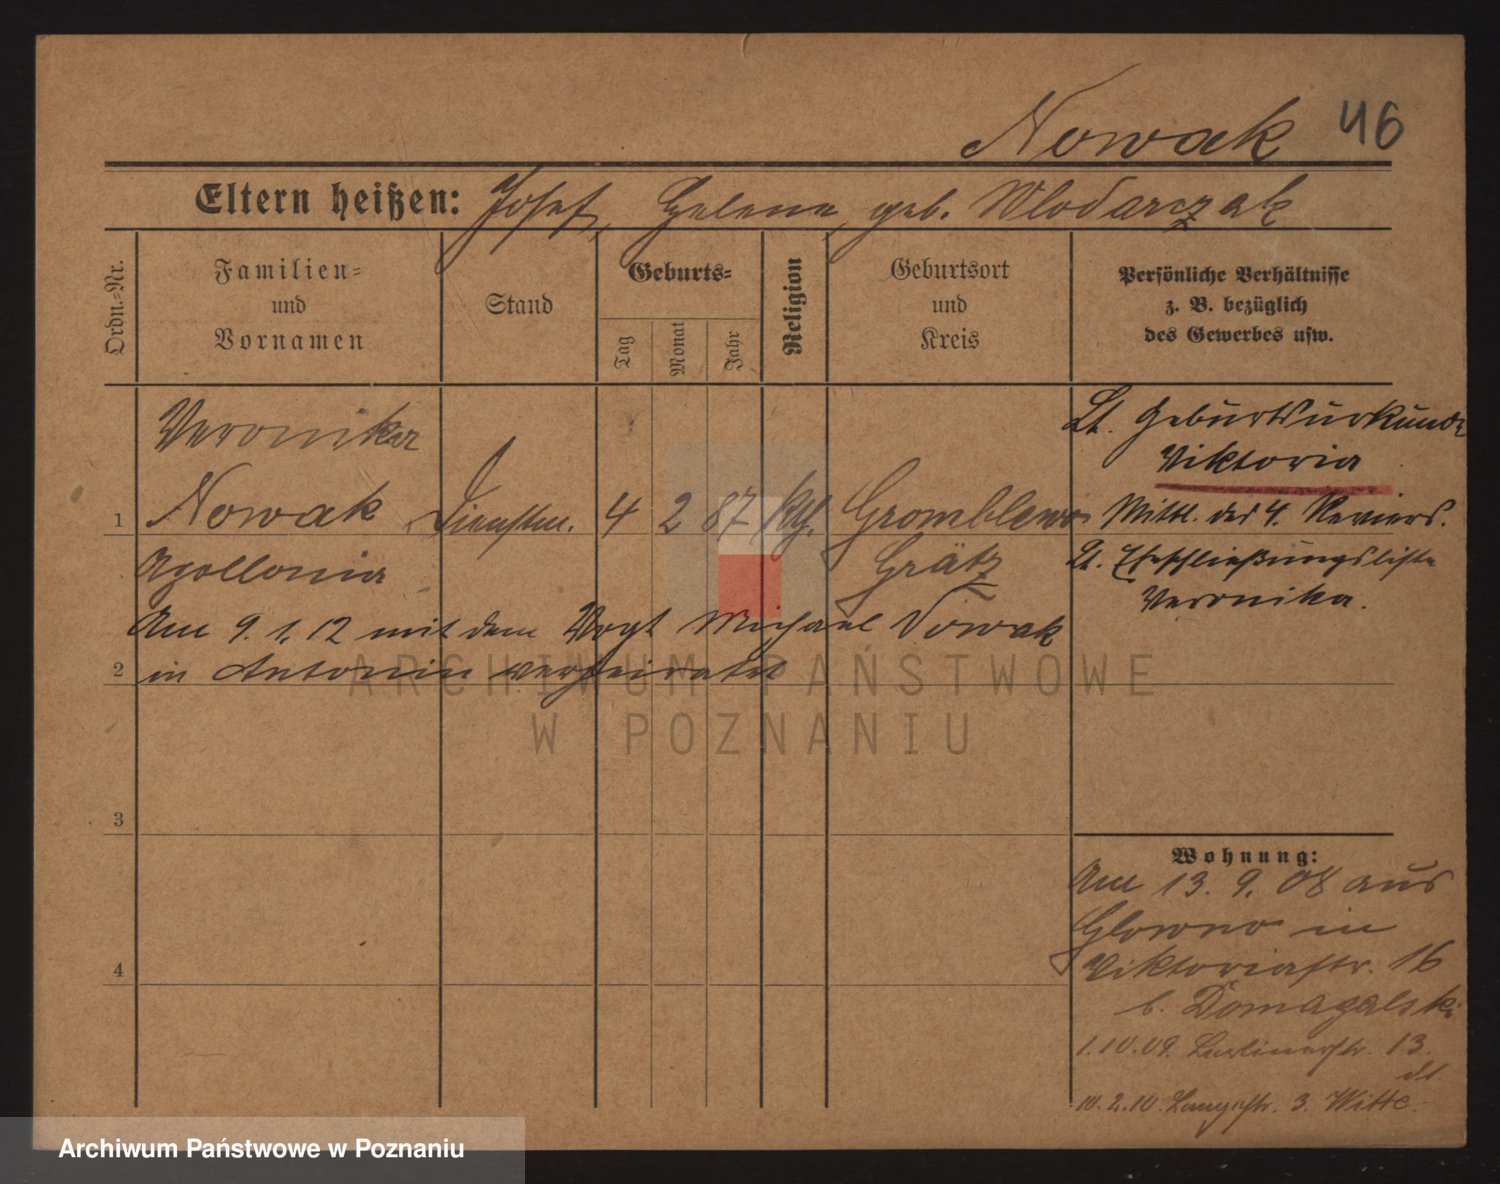 Nowak 46
Eltern heißen: Josef, Helene, geb. Wlodarczak
Ordn.-Nr.
Familien-
und
Vornamen
Stand
Geburts-
Tag
Monat
Jahr
Religion
Geburtsort
und
Kreis
Persönliche Verhältnisse
z. B. bezüglich
des Gewerbes usw.
Veronika
1 Nowak Dienstm. 4 2 87 kth. Gromblewo
Apollonia Grätz
Am 9. 1. 12 mit dem Vogt Michael Nowak
2 in Antonin verheiratet
3
4
Lt. Geburtsurkunde
Viktoria
Mittl. des 4. Reviers.
Lt. Eheschließungsliste
Veronika.
Wohnung:
Am 13. 9. 08 aus
Glowno in
Viktoriastr. 16
b. Domagalski
1.10.09. Berlinerstr. 13.
10.2.10. Langestr. 3. Witte.
ARCHIWUM PAŃSTWOWE
W POZNANIU
Archiwum Państwowe w Poznaniu